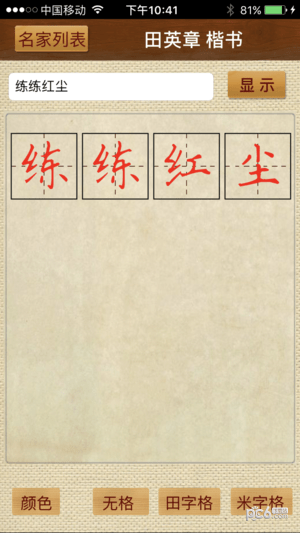 中国移动 下午10:41 81%
名家列表 田英章 楷书
练练红尘 显示
练练红尘
颜色 无格 田字格 米字格